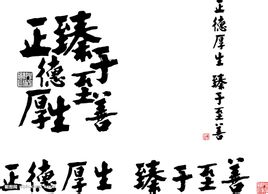 正德厚生
臻于至善
正德厚生 臻于至善
正德厚生 臻于至善